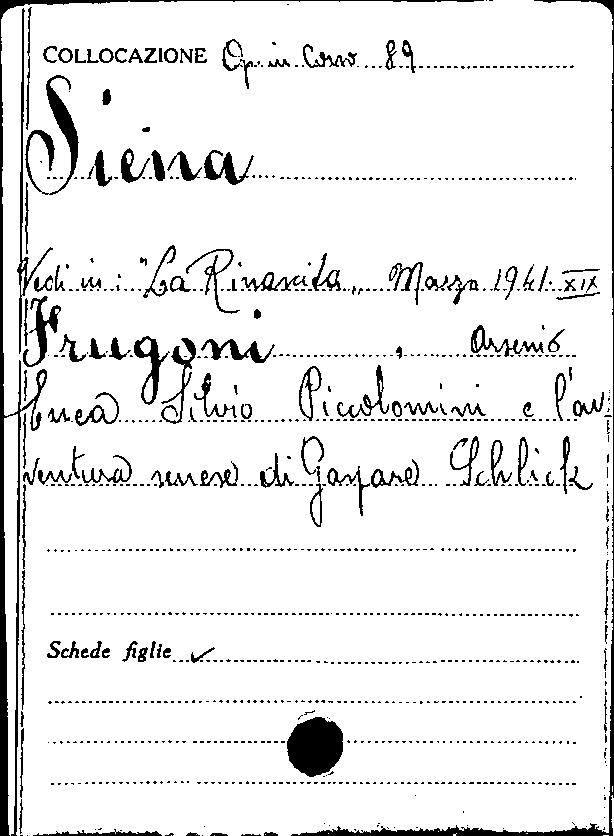 COLLOCAZIONE Op. in Corso 89
Siena
Vedi in: "La Rinascita„ Marzo 1941. XIX
Frugoni, Arsenio
Enea Silvio Piccolomini e l'av
ventura senese di Gaspare Schlick
Schede figlie ✓